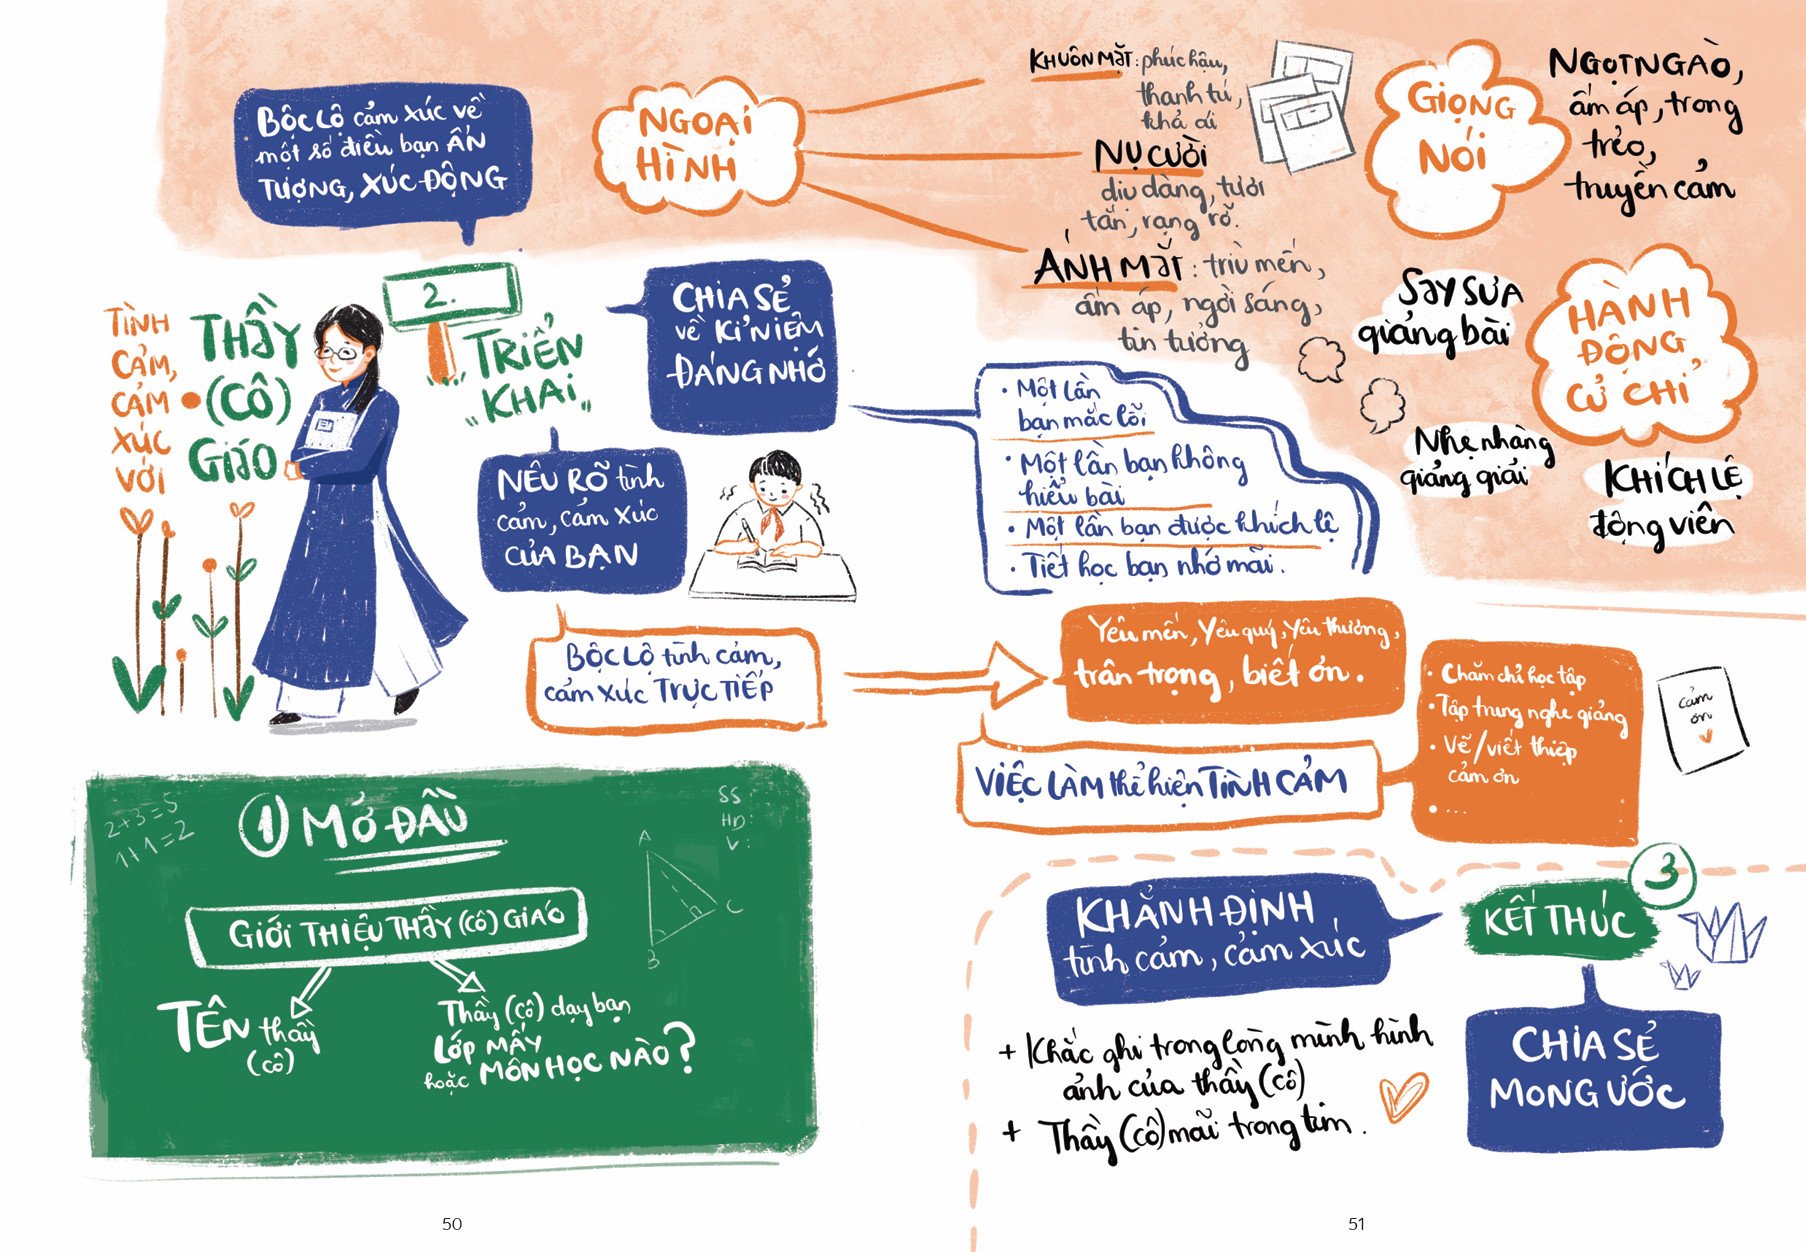 TÌNH
CẢM,
CẢM
XÚC
VỚI
THẦY
(CÔ)
GIÁO
① MỞ ĐẦU
2+3=5
1+1=2
SS:
HD:
V:
A
B
C
GIỚI THIỆU THẦY (CÔ) GIÁO
TÊN thầy
(cô)
Thầy (cô) dạy bạn
LỚP MẤY
hoặc MÔN HỌC NÀO?
2.
TRIỂN
KHAI
BỘC LỘ cảm xúc về
một số điều bạn ẤN
TƯỢNG, XÚC ĐỘNG
NGOẠI
HÌNH
KHUÔN MẶT: phúc hậu,
thanh tú,
khả ái
NỤ CƯỜI
dịu dàng, tươi
tắn, rạng rỡ.
ÁNH MẮT: trìu mến,
ấm áp, ngời sáng,
tin tưởng
GIỌNG
NÓI
NGỌT NGÀO,
ấm áp, trong
trẻo,
truyền cảm
HÀNH
ĐỘNG
CỬ CHỈ
SAY SƯA
giảng bài
Nhẹ nhàng
giảng giải
KHÍCH LỆ
động viên
CHIA SẺ
về KỈ NIỆM
ĐÁNG NHỚ
• Một lần
bạn mắc lỗi
• Một lần bạn không
hiểu bài
• Một lần bạn được khích lệ
• Tiết học bạn nhớ mãi.
NÊU RÕ tình
cảm, cảm xúc
CỦA BẠN
BỘC LỘ tình cảm,
cảm xúc TRỰC TIẾP
Yêu mến, Yêu quý, Yêu thương,
trân trọng, biết ơn.
VIỆC LÀM thể hiện TÌNH CẢM
• Chăm chỉ học tập
• Tập trung nghe giảng
• Vẽ/viết thiệp
cảm ơn
• ...
cảm
ơn
3
KẾT THÚC
KHẲNH ĐỊNH
tình cảm, cảm xúc
+ Khắc ghi trong lòng mình hình
ảnh của thầy (cô)
+ Thầy (cô) mãi trong tim.
CHIA SẺ
MONG ƯỚC
50
51